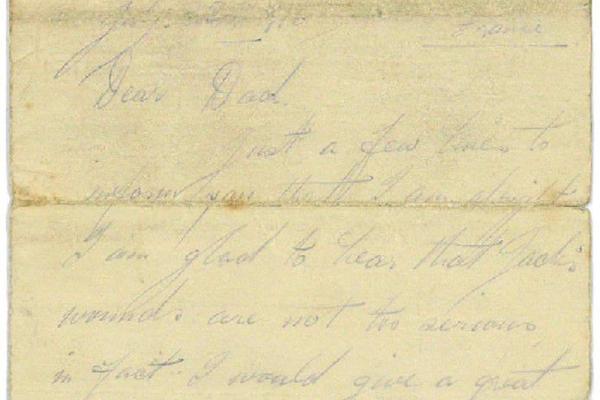 France
Dear Dad.
Just a few lines to
inform you that I am alright
I am glad to hear that Jack's
wounds are not too serious
in fact I would give a great